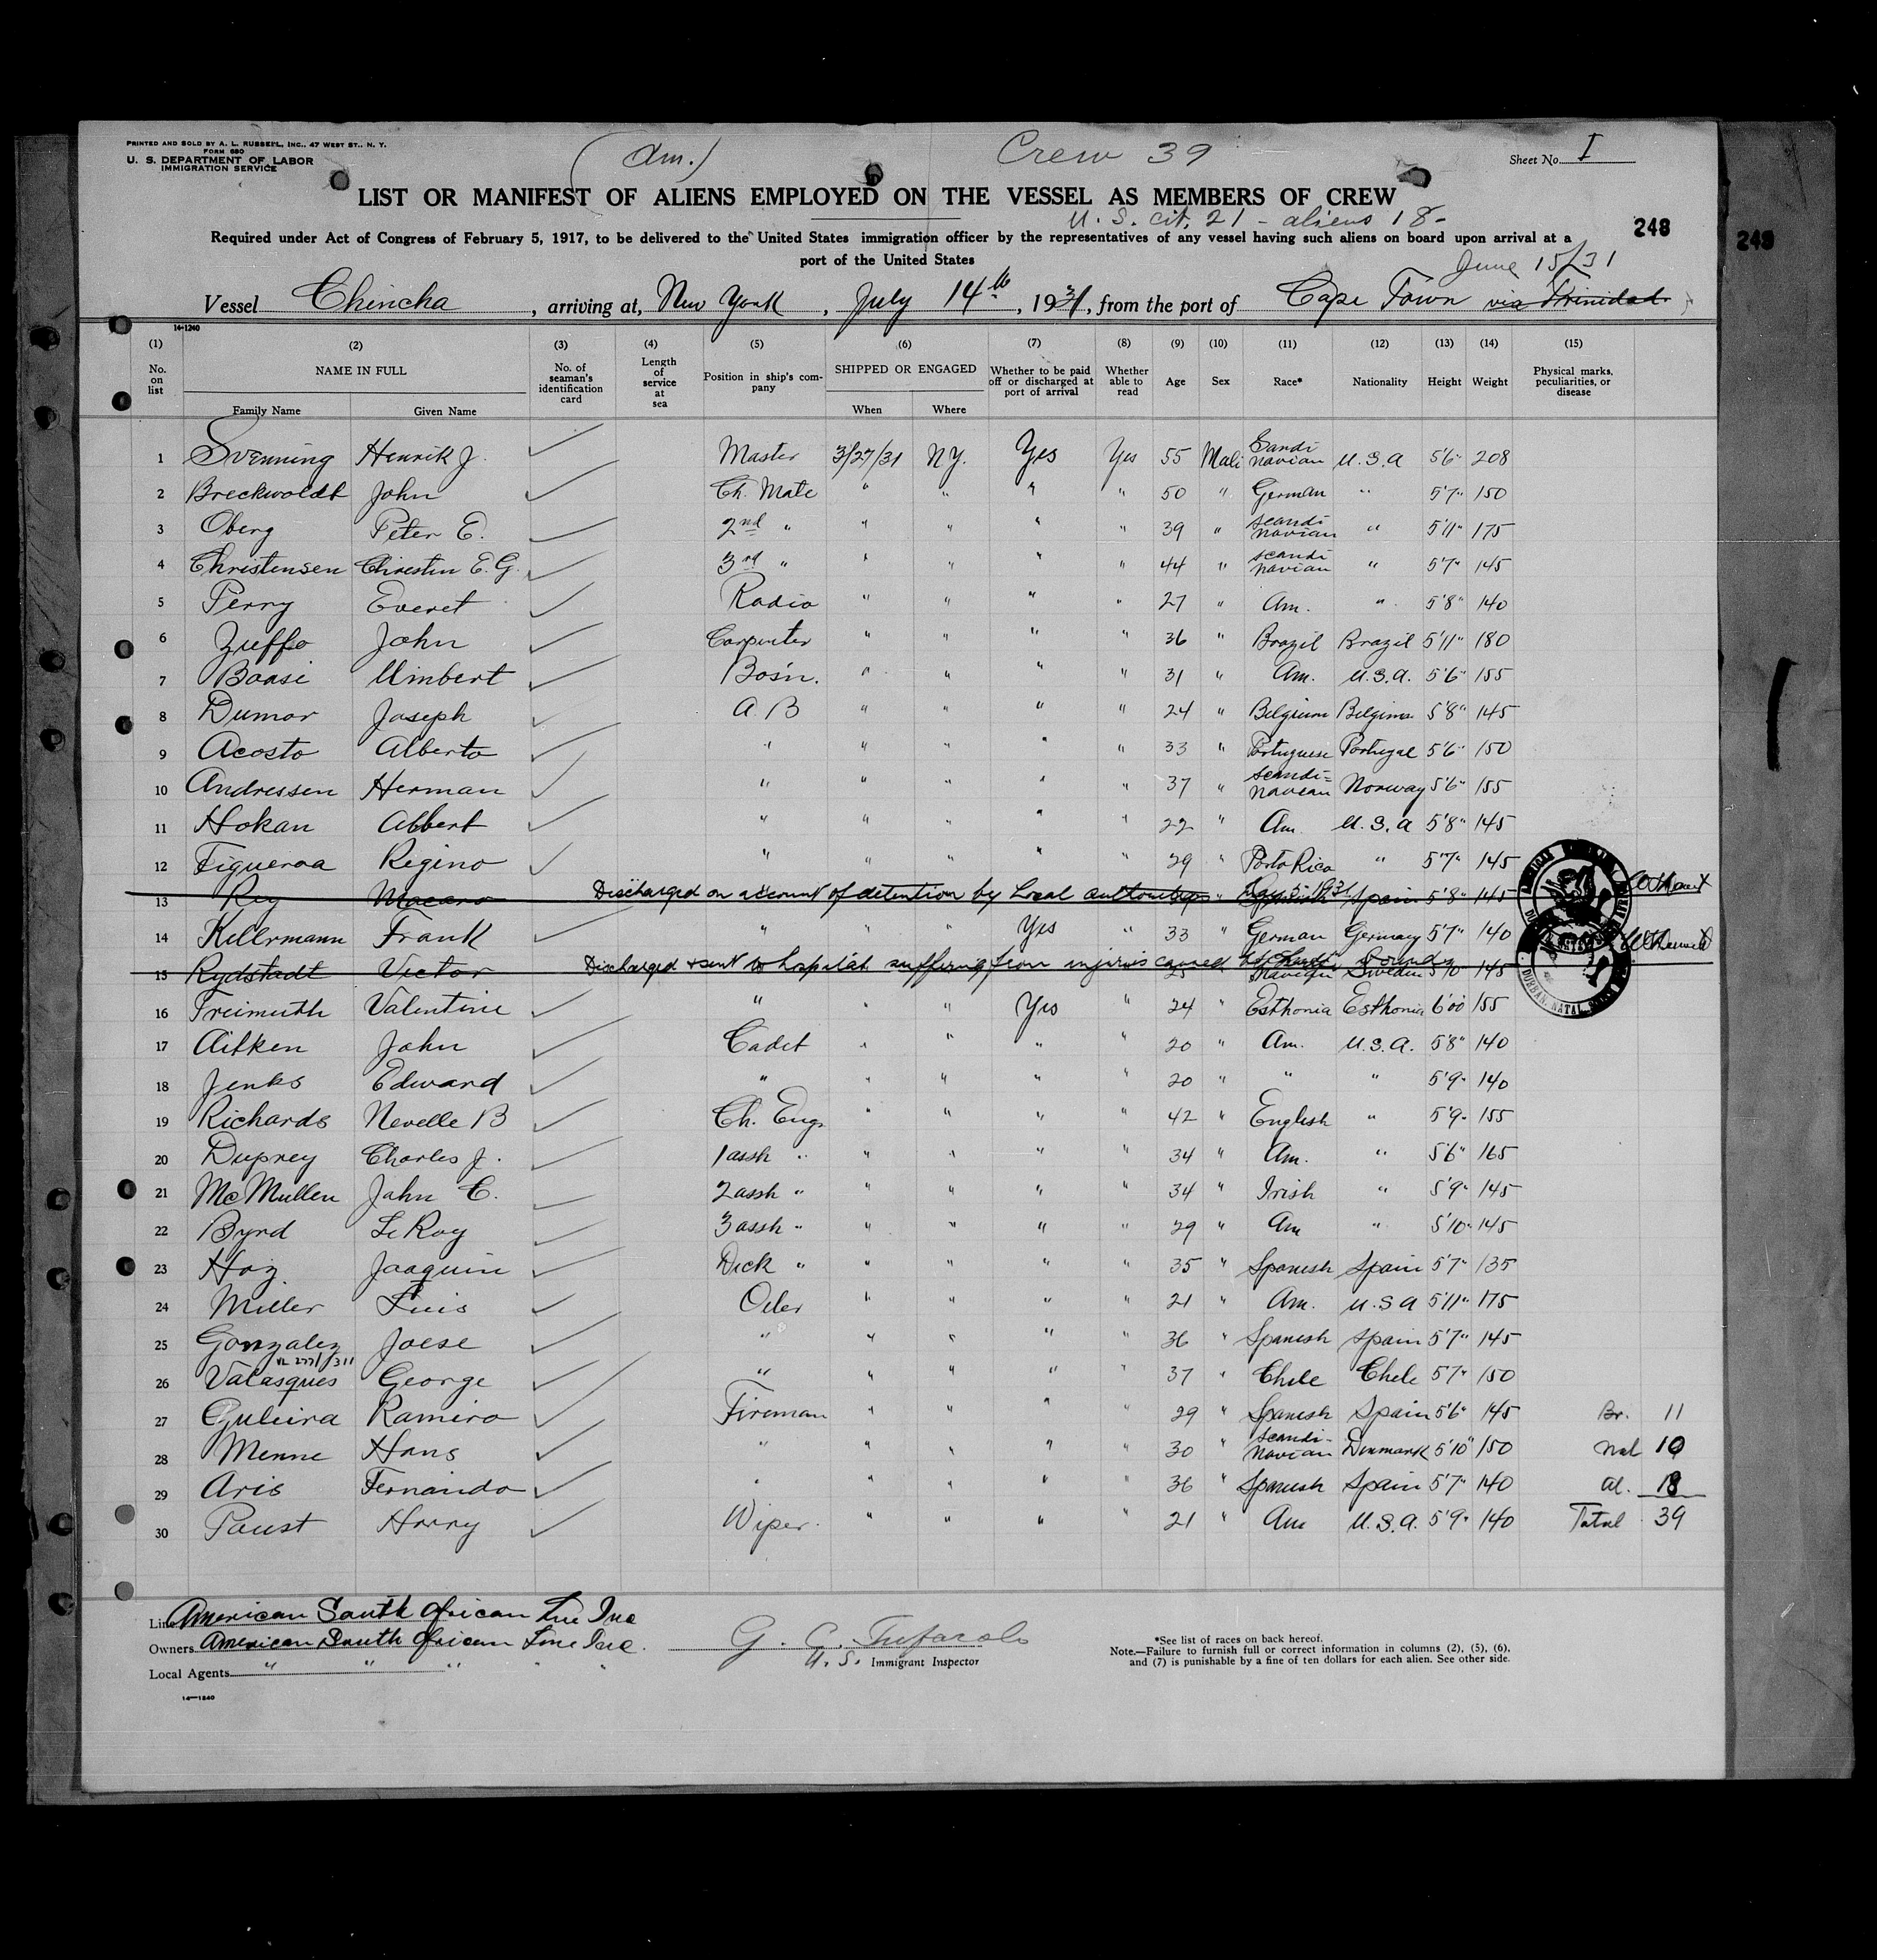 PRINTED AND SOLD BY A. L. RUSSELL, INC., 47 WEST ST., N. Y.
FORM 680
U. S. DEPARTMENT OF LABOR
IMMIGRATION SERVICE
(Am.)
Crew 39
Sheet No. I
LIST OR MANIFEST OF ALIENS EMPLOYED ON THE VESSEL AS MEMBERS OF CREW
U. S. cit. 21 - aliens 18 -
248
249
Required under Act of Congress of February 5, 1917, to be delivered to the United States immigration officer by the representatives of any vessel having such aliens on board upon arrival at a
port of the United States
June 15/31
Vessel Chincha, arriving at, New York, July 14th, 1931, from the port of Cape Town via Trinidad
14-1240
(1) (2) (3) (4) (5) (6) (7) (8) (9) (10) (11) (12) (13) (14) (15)
No. on list NAME IN FULL Family Name Given Name No. of seaman's identification card Length of service at sea Position in ship's company SHIPPED OR ENGAGED When Where Whether to be paid off or discharged at port of arrival Whether able to read Age Sex Race* Nationality Height Weight Physical marks, peculiarities, or disease
1 Svenning Henrik J. Master 3/27/31 N.Y. Yes Yes 55 Male Scandinavian U.S.A 5'6" 208
2 Breckwoldt John Ch. Mate " " " " 50 " German " 5'7" 150
3 Oberg Peter E. 2nd " " " " " 39 " Scandinavian " 5'11" 175
4 Christensen Christen E. G. 3rd " " " " " 44 " Scandinavian " 5'7" 145
5 Perry Everet Radio " " " " 27 " Am. " 5'8" 140
6 Zuffo John Carpenter " " " " 36 " Brazil Brazil 5'11" 180
7 Boasi Umbert Bos'n. " " " " 31 " Am. U.S.A. 5'6" 155
8 Dumor Joseph A B " " " " 24 " Belgium Belgium 5'8" 145
9 Acosto Alberto " " " " " 33 " Portuguese Portugal 5'6" 150
10 Andressen Herman " " " " " 37 " Scandinavian Norway 5'6" 155
11 Hokan Abbert " " " " " 22 " Am. U.S.A 5'8" 145
12 Figueroa Regino " " " " " 29 " Porto Rico " 5'7" 145
13 Rey Macaro Discharged on account of detention by Local authorities Spain 5'8" 145
14 Kellrmann Frank " " " Yes " 33 " German Germany 5'7" 140
15 Rydstadt Victor Discharged & sent to hospital suffering from injuries caused Sweden 5'10" 145
16 Freimuth Valentine " " " Yes " 24 " Esthonia Esthonia 6'00 155
17 Aitken John Cadet " " " " 20 " Am. U.S.A. 5'8" 140
18 Jenks Edward " " " " " 20 " " " 5'9" 140
19 Richards Nevelle B Ch. Eng. " " " " 42 " English " 5'9" 155
20 Duprey Charles J. 1 asst " " " " " 34 " Am. " 5'6" 165
21 McMullen John C. 2 asst " " " " " 34 " Irish " 5'9" 145
22 Byrd Le Roy 3 asst " " " " " 29 " Am " 5'10" 145
23 Hoz Joaquin Deck " " " " " 35 " Spanish Spain 5'7" 135
24 Miller Luis Oiler " " " " 21 " Am. U.S.A 5'11" 175
25 Gonzalez Joese " " " " " 36 " Spanish Spain 5'7" 145
26 Valasques George " " " " " 37 " Chile Chele 5'7" 150
27 Guleira Ramiro Fireman " " " " 29 " Spanish Spain 5'6" 145 Br. 11
28 Menne Hans " " " " " 30 " Scandinavian Denmark 5'10" 150 Nat 10
29 Aris Fernando " " " " " 36 " Spanish Spain 5'7" 140 Al. 18
30 Paust Harry Wiper " " " " 21 " Am U.S.A. 5'9" 140 Total 39
Line American South African Line Inc
Owners American South African Line Inc.
Local Agents " " " " "
U. S. Immigrant Inspector
*See list of races on back hereof.
Note.—Failure to furnish full or correct information in columns (2), (5), (6),
and (7) is punishable by a fine of ten dollars for each alien. See other side.
14-1240